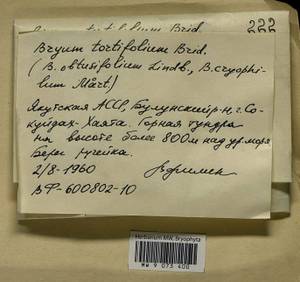 222
Bryum tortifolium Brid.
(B. obtusifolium Lindb., B. cryophi-
lum Mårt)
Якутская АССР, Булунский р-н, г. Со-
куйдах-Хаята. Горная тундра
на высоте более 800 м над ур. моря
Берег ручейка.
2/8-1960
ВФ-600802-10
Herbarium MW, Bryophyta
MW 9 073 408